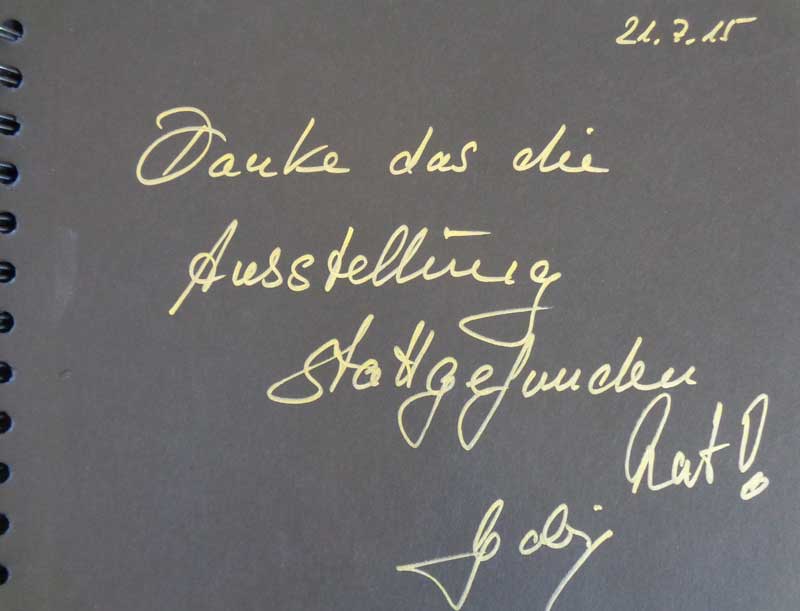 21.7.15
Danke das die
Ausstellung
stattgefunden
hat!